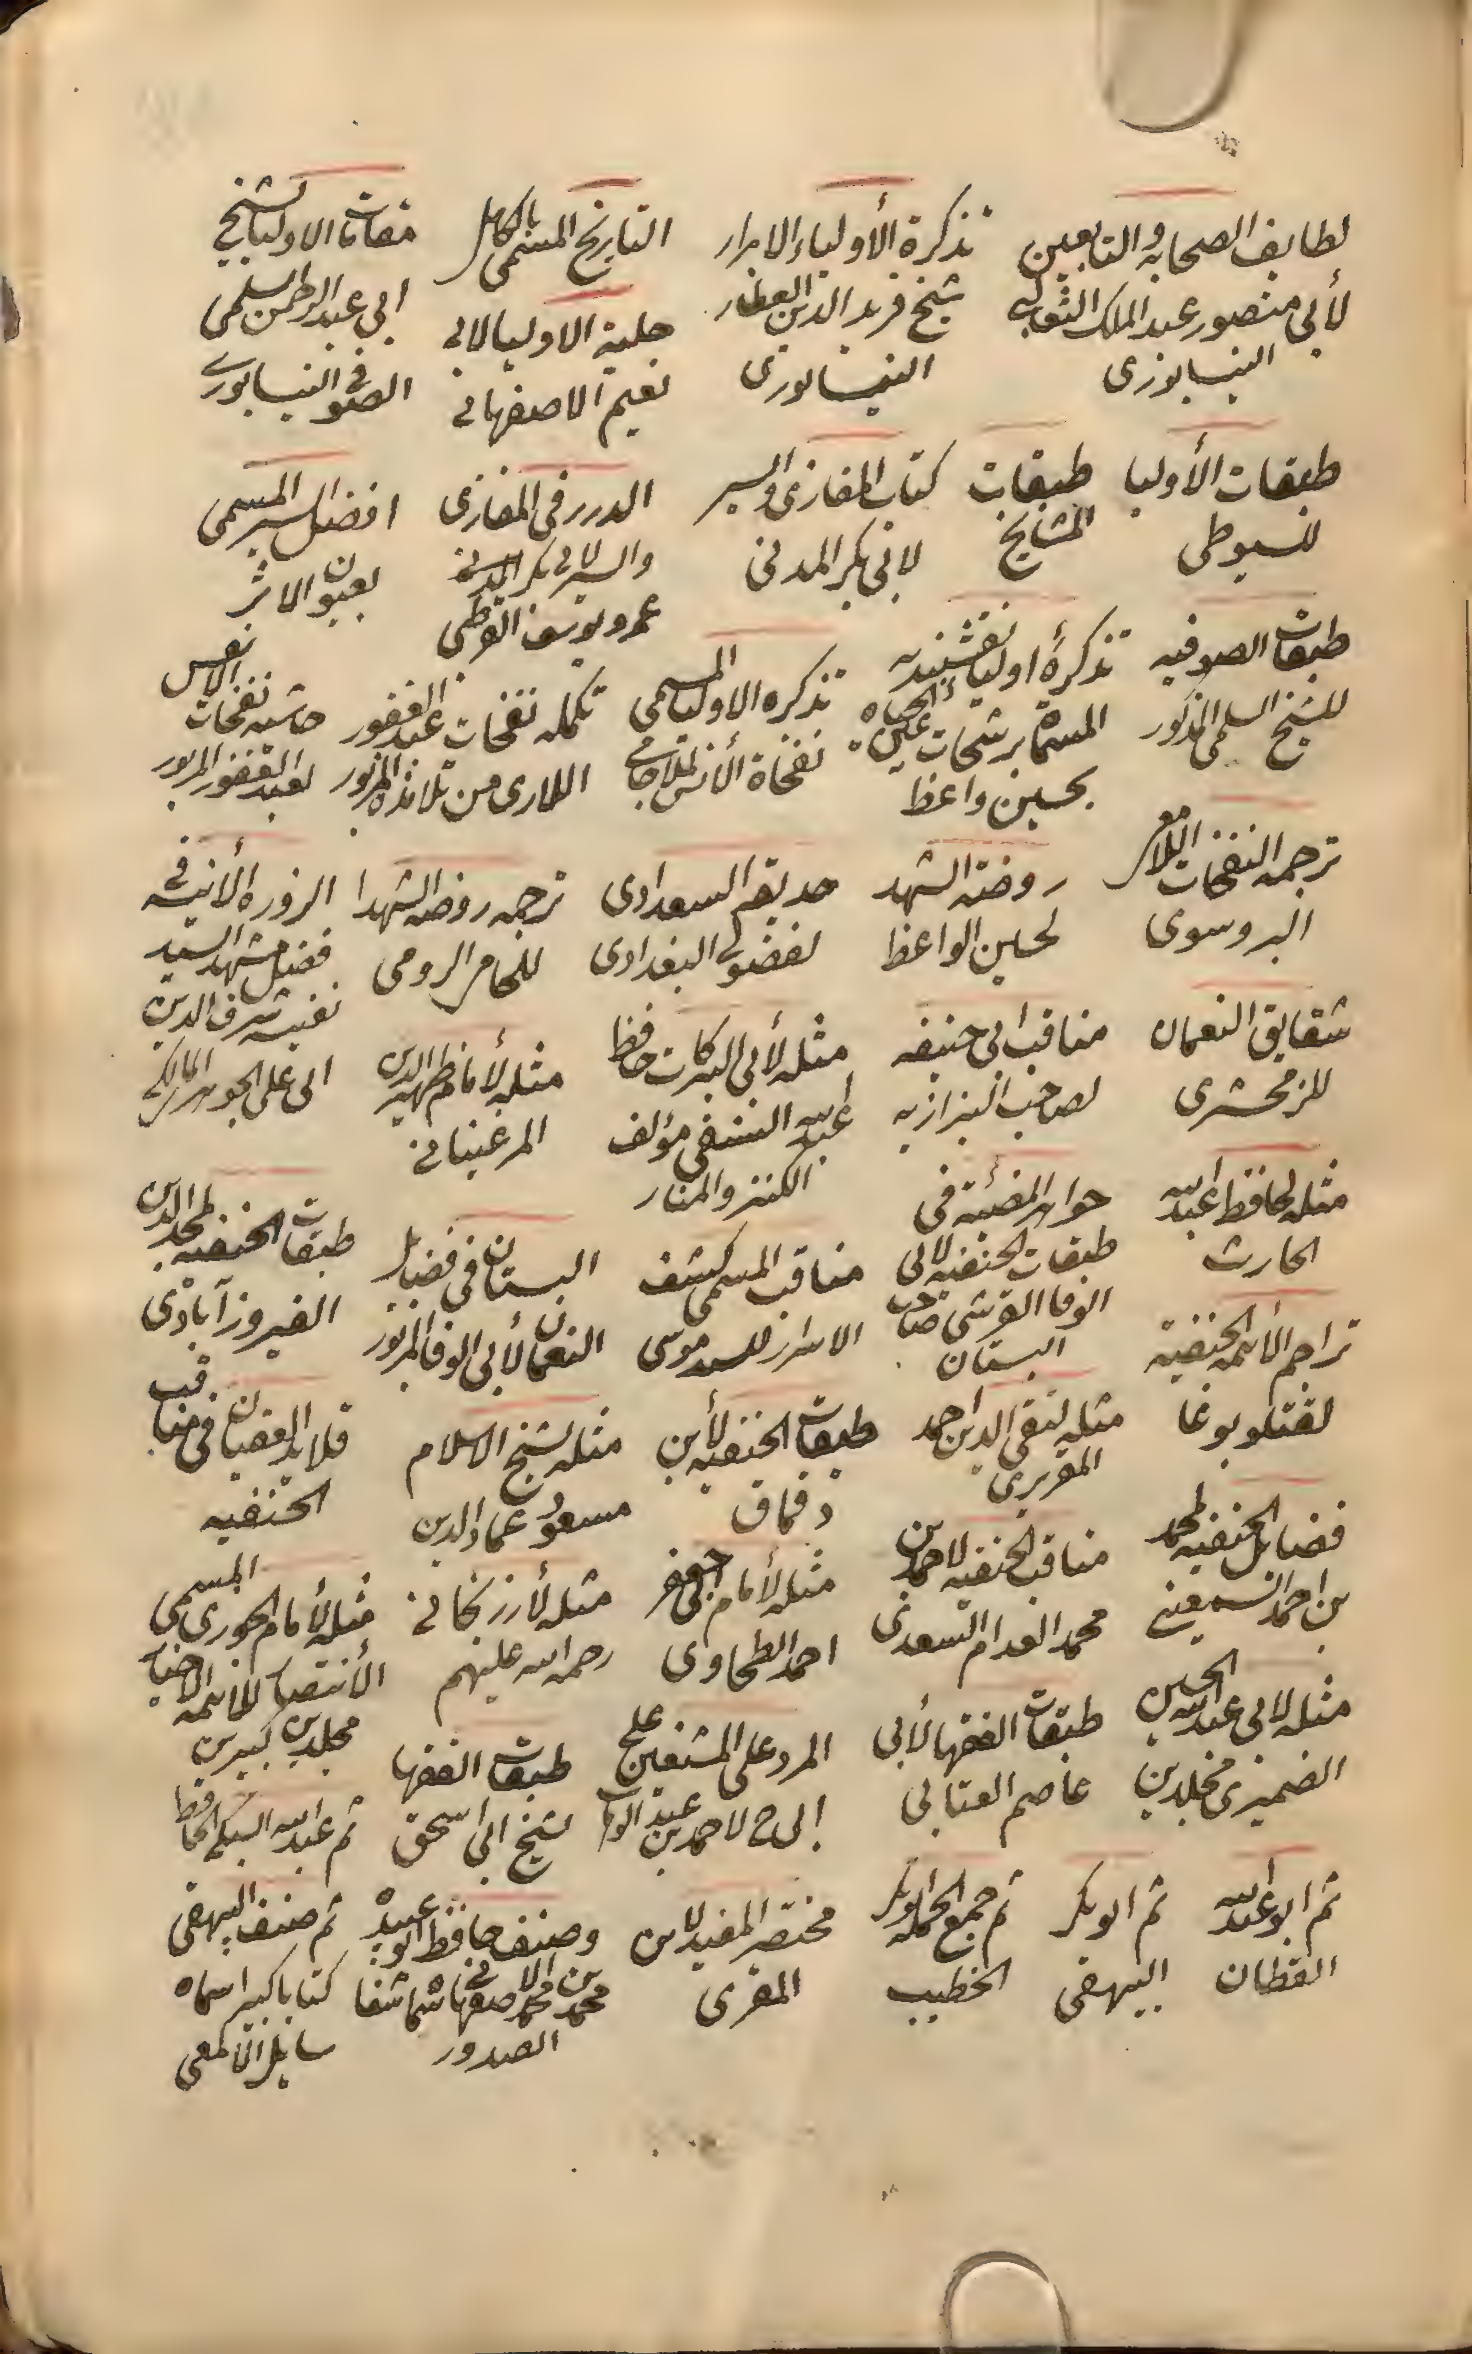 لطايف الصحابه والتابعين
لأبي منصور عبد الملك الثعالبي
النيسابوري
تذكرة الأولياء الابرار
شيخ فريد الدين العطار
النيسابوري
التاريخ المسمى بالكامل
حلية الاوليا لابي
نعيم الاصفهاني
مقامات الاوليا لشيخ
ابي عبد الرحمن السلمي
الصوفي النيسابوري
طبقات الأوليا
للسيوطي
طبقات
المشايخ
كتاب المغازي والسير
لابي بكر المدني
الدرر في المغازي
والسير لابي بكر المدني
عمرو يوسف القرطبي
افضل السير المسمى
بعيون الاثر
طبقات الصوفيه
للشيخ السلمي المذكور
تذكرة اوليا نقشبنديه
المسماة برشحات عين الحياه
بحسين واعظ
تذكره الاوليا المسمى
نفحاة الأنس لملا جامي
تكمله نفحات عبد الغفور
اللاري من تلامذه المزبور
حاشيه نفحات الانس
لعبد الغفور المزبور
ترجمه النفحات اللامعي
البروسوي
روضة الشهد
لحسين الواعظ
حديقة السعداوي
لفضولي البغدادي
ترجمه روضه الشهدا
للجامي الرومي
الزوره الأنيثه في
فضل مشهد السيد
نفيسه شرف الدين
ابي علي الجوهر المالكي
شقايق النعمان
للزمخشري
مناقب ابي حنيفه
لصاحب البزازيه
مثله لأبي البركات حافظ
عبد الله النسفي مؤلف
الكنز والمنار
مثله لأمام ظهير الدين
المرغيناني
مثله لحافظ عبد الله
الحارث
جواهر المضئية في
طبقات الحنفيه لابي
الوفا القرشي صاحب
البستان
مناقب المسمى كشف
الاسرار للسيد موسى
البستان في فضايل
النعمان لأبي الوفا المزبور
طبقات الحنفيه لمجد الدين
الفيروز آبادي
تراجم الأئمه الحنفية
لقتلوبوغا
مثله لتقي الدين احمد
المقريزي
طبقات الحنفيه لأبن
دقماق
مثله لشيخ الاسلام
مسعود عماد الدين
قلائد العقيان في مناقب
الحنفيه
فضائل الحنفيه لمحمد
بن احمد
مناقب الحنفيه لاحمد بن
محمد السعدي
مثله لأمام ابي جعفر
احمد الطحاوي
مثله لأرزنجاني
رحمه الله عليهم
مثله لأمام الجوزي المسمى
الأنتصار للائمه الاخيار
مجلدين كبيرين
مثله لابي عبد الله الحسين
الضميري مجلدين
طبقات الفقها لأبي
عاصم العبابي
الرد على المشنعين علي
لاحمد بن عبد
طبقات الفقها
لشيخ ابي اسحق
ثم عبد الله السبكي الحافظ
ثم ابو عبد الله
القطان
ثم ابو بكر
البيهقي
ثم جمع الحمد ابو بكر
الخطيب
مختصر المفيد لابن
المقري
وصنف حافظ ابو عبيد
محمد بن محمد الاصفهاني سماه شفا
الصدور
ثم صنف البيهقي
كتابا كبيرا سماه